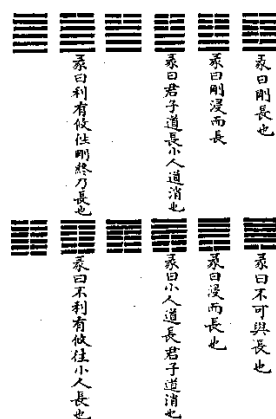 彖曰剛長也
彖曰剛浸而長
彖曰君子道長小人道消也
彖曰利有攸往剛終乃長也
彖曰不可與長也
彖曰浸而長也
彖曰小人道長君子道消也
彖曰不利有攸往小人長也